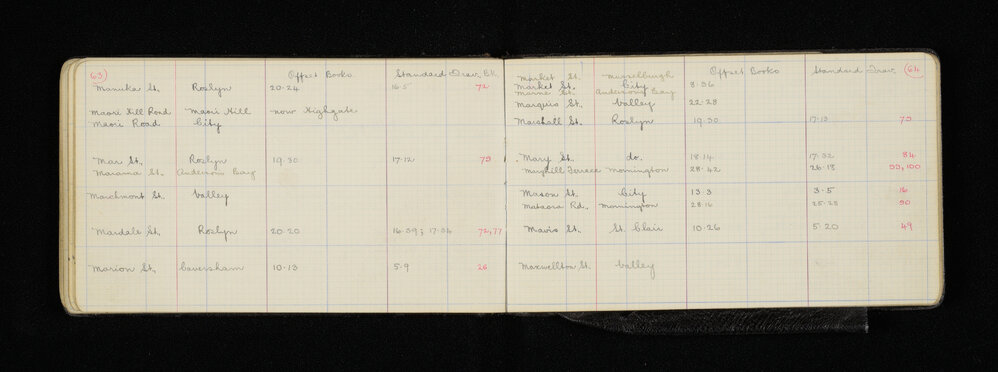 63 Offset Books Standard Draw. Bk.
Manuka St. Roslyn 20·24 16·5 72
Maori Hill Road Maori Hill now Highgate
Maori Road City
Mar St. Roslyn 19·30 17·12 75
Marama St. Anderson Bay
Marchmont St. Valley
Mardale St. Roslyn 20·20 16·39; 17·36 72,77
Marion St. Caversham 10·13 5·9 26
Offset Books Standard Draw. 64
Market St. Musselburgh
Market St. City 8·36
Marne St. Andersons Bay
Marquis St. Valley 22·28
Marshall St. Roslyn 19·30 17·13 75
Mary St. do. 18·14 17·32 84
Maryhill Terrace Mornington 28·42 26·13 93,100
Mason St. City 13·3 3·5 16
Mataora Rd. Mornington 28·16 25·25 90
Mavis St. St. Clair 10·26 5·20 49
Maxwellton St. Valley